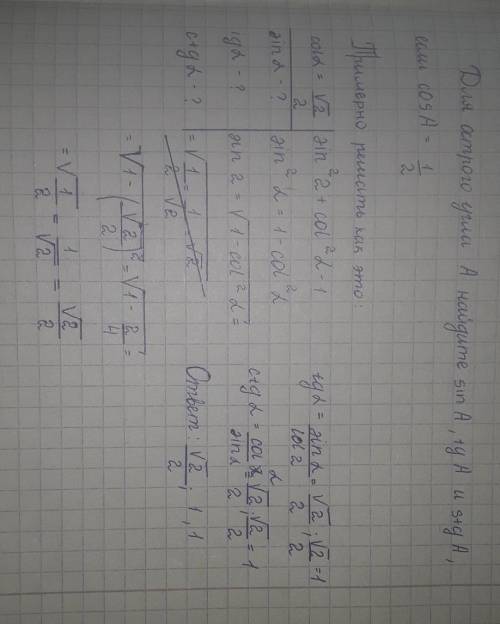 Для острого угла A найдите sin A, tg A и stg A,
если cos A = 1/2
Примерно решать как это:
cos α = √2/2
sin α - ?
tg α - ?
ctg α - ?
sin² α + cos² α = 1
sin² α = 1 - cos² α
sin α = √1 - cos² α =
= √1/2 = 1/√2 = √2
= √1 - (√2/2)² = √1 - 2/4 =
= √1/2 = 1/√2 = √2/2
tg α = sin α/cos α = √2/2 : √2/2 = 1
ctg α = cos α/sin α = √2/2 : √2/2 = 1
Ответ: √2/2; 1, 1